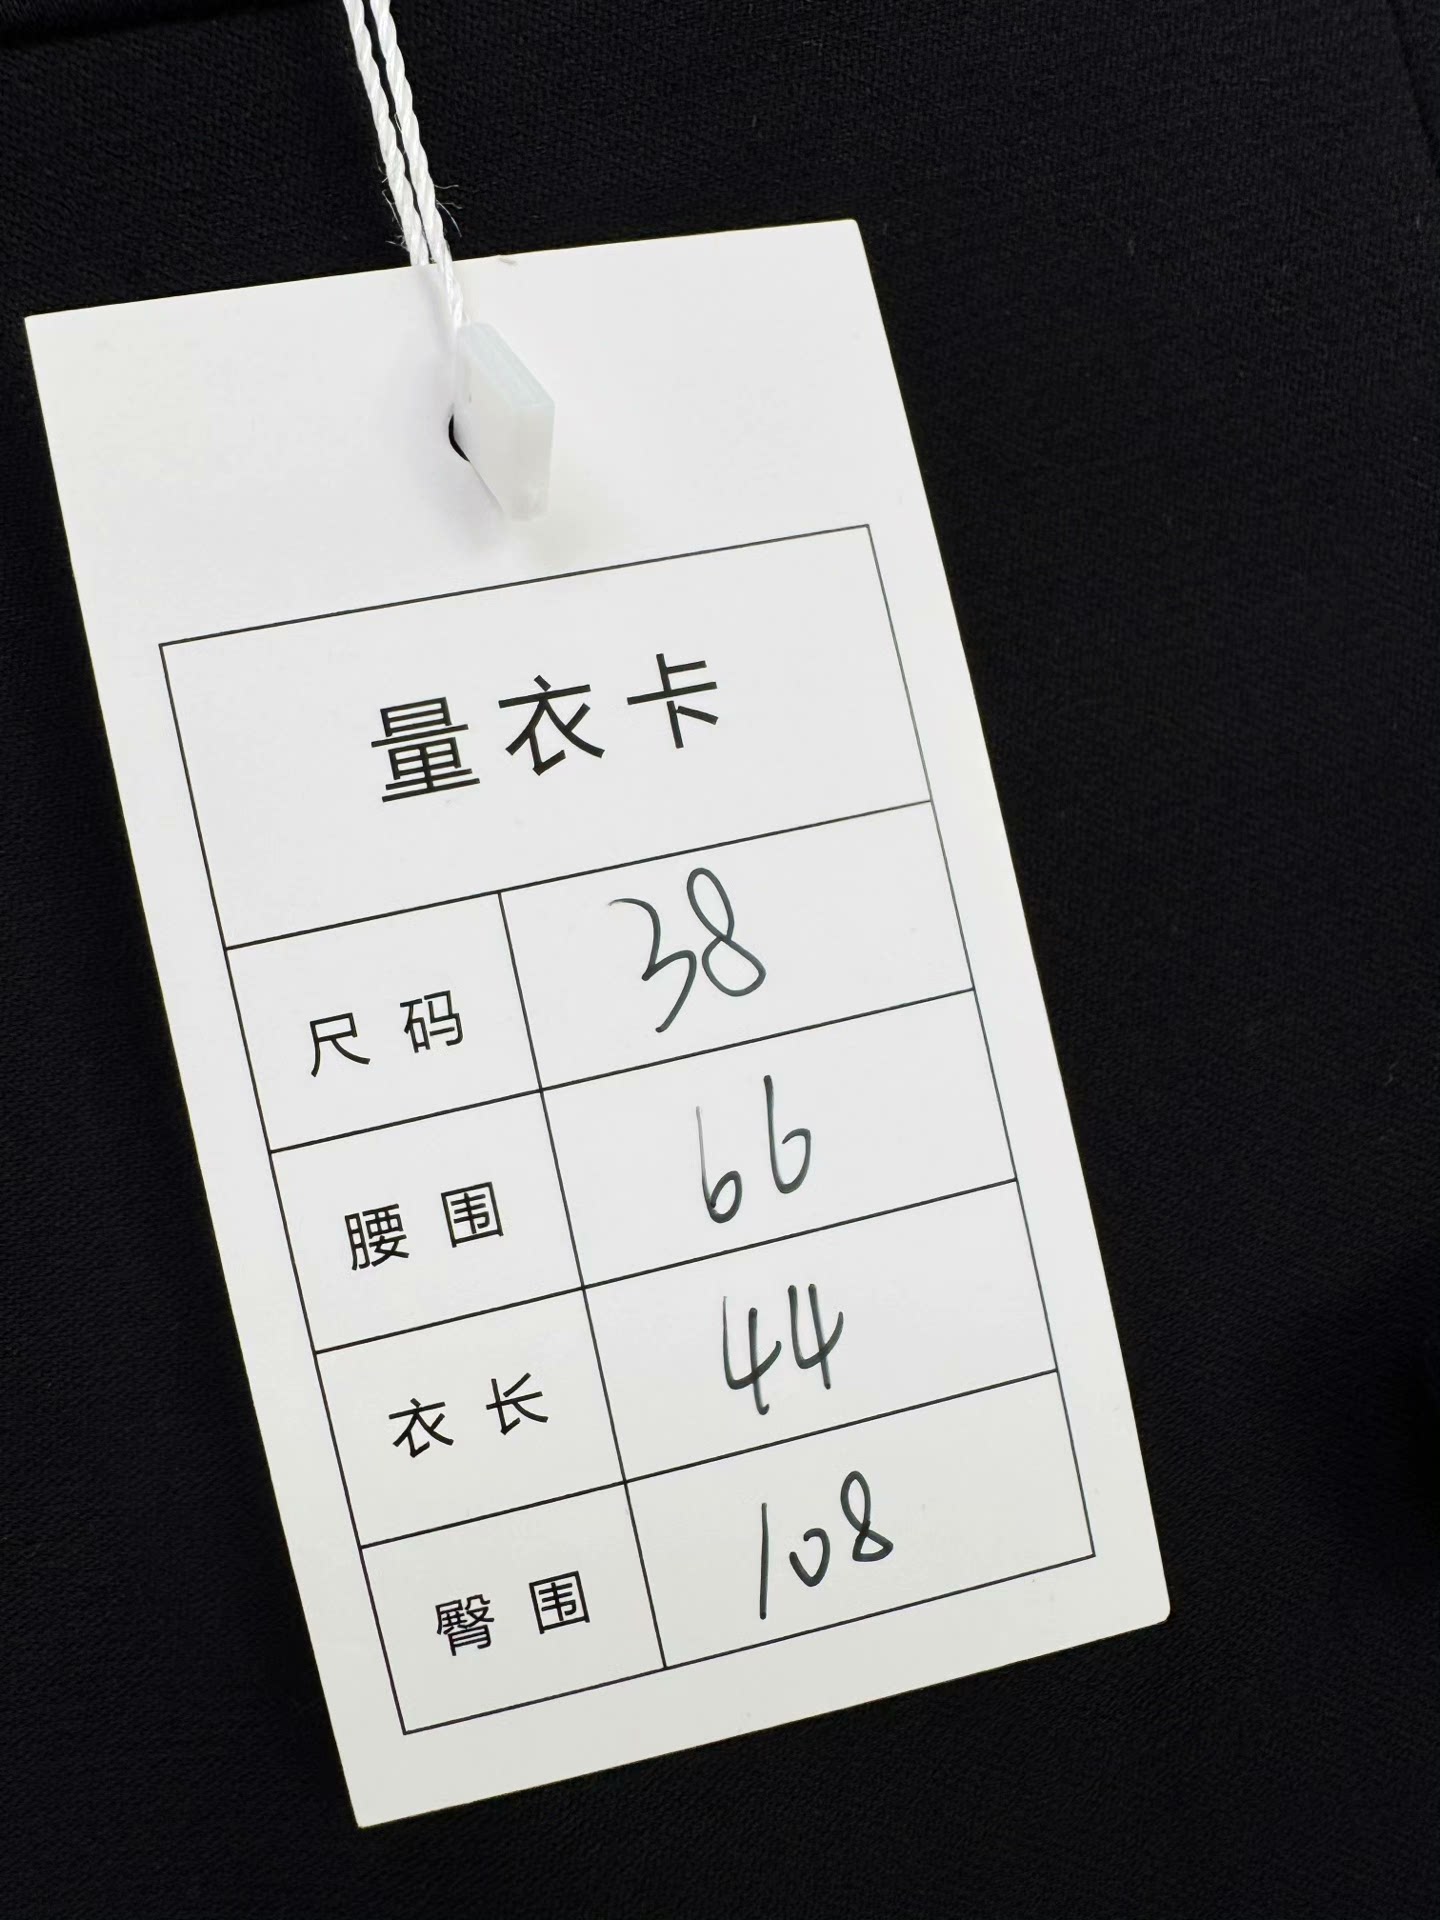 量衣卡
尺码 38
腰围 66
衣长 44
臀围 108